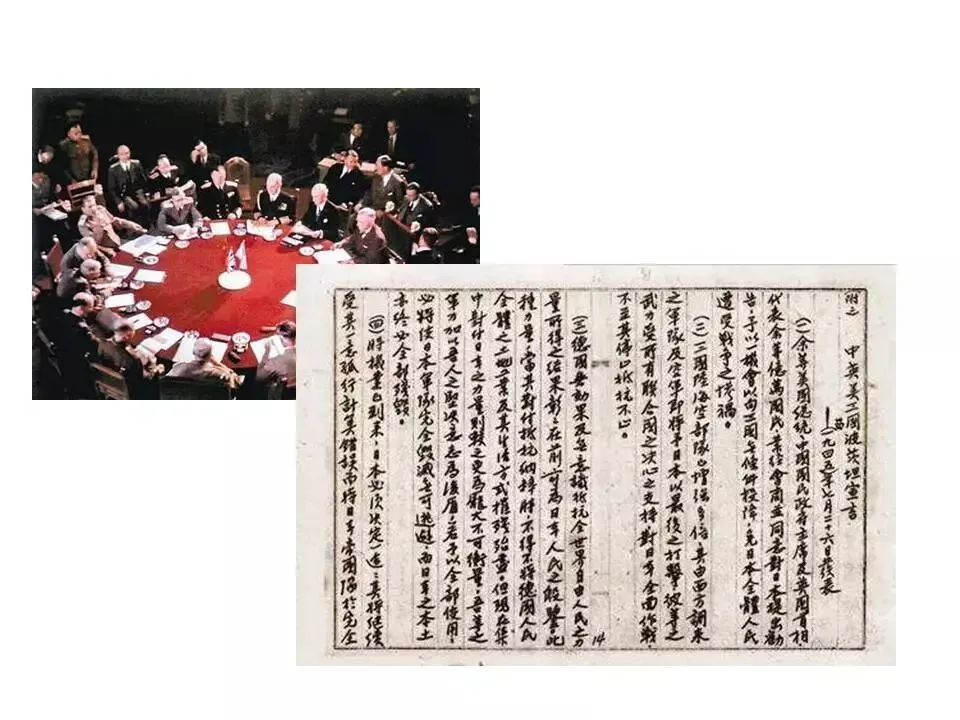 附二 中英美三國波茨坦宣言
一九四五年七月二十六日發表
(一)余等美國總統、中國國民政府主席及英國首相,
代表余等億萬國民,業經會商並同意對日本提出勸
告,予以一機會以向三國無條件投降,免日本全體人民
遭受戰爭之慘禍。
(二)三國陸海空部隊已增強多倍,其由西方調來
之軍隊及空軍即將予日本以最後之打擊,彼等之
武力受所有聯合國之決心之支持,對日本全面作戰,
不至其停止抵抗不止。
(三)德國無効果及無意識抵抗全世界自由人民之力
量所得之結果,彰彰在前,可為日本人民之殷鑒。此
種力量,當其對付抵抗納粹時,不得不將德國人民
全體之土地業及其生活方式摧殘殆盡。但現在集
中對付日本之力量則較之更為龐大不可衡量。吾等之
軍力,加以吾人之堅決意志為後盾,若予以全部使用,
必將使日本軍隊完全毀滅無可逃避,而日本之本土
亦終必全部殘毀。
(四)時機業已到來,日本必須決定一途:其將繼續
受其一意孤行計算錯誤而將日本帝國陷於完全
14